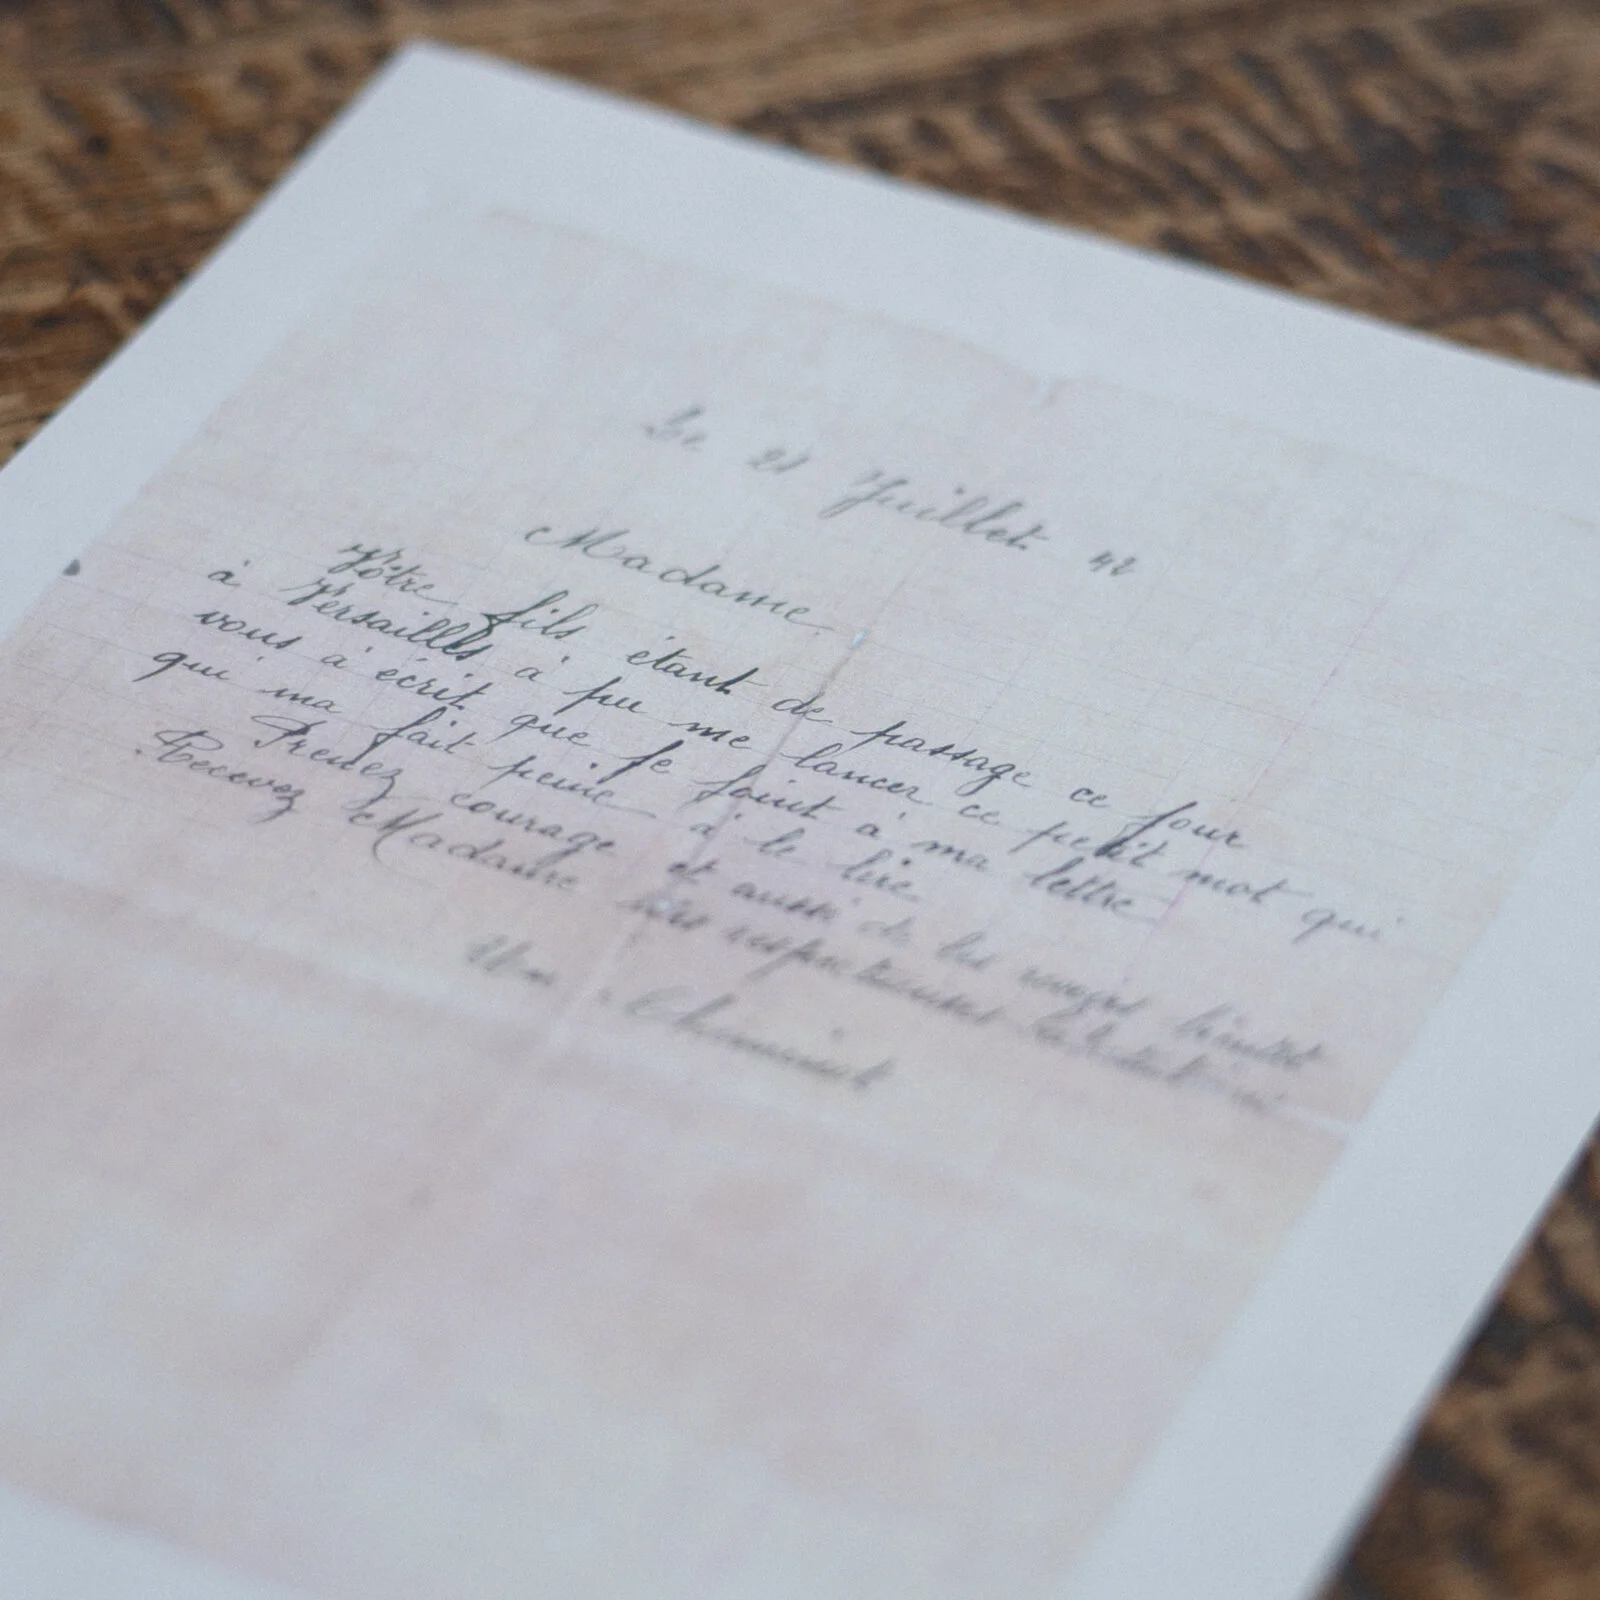 Le 21 Juillet 42
Madame
Vôtre fils étant de passage ce jour
à Versailles à pu me lancer ce petit mot qui
vous à écrit que je joint à ma lettre
qui ma fait peine à le lire
Prenez courage et aussi de les revoir bientôt
Recevez Madame mes respectueuses
Un Cheminot